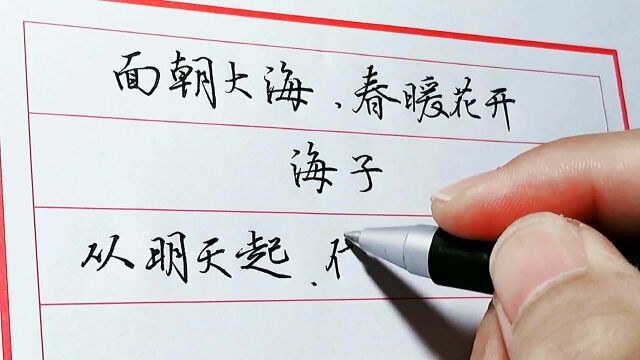 面朝大海、春暖花开
海子
从明天起、